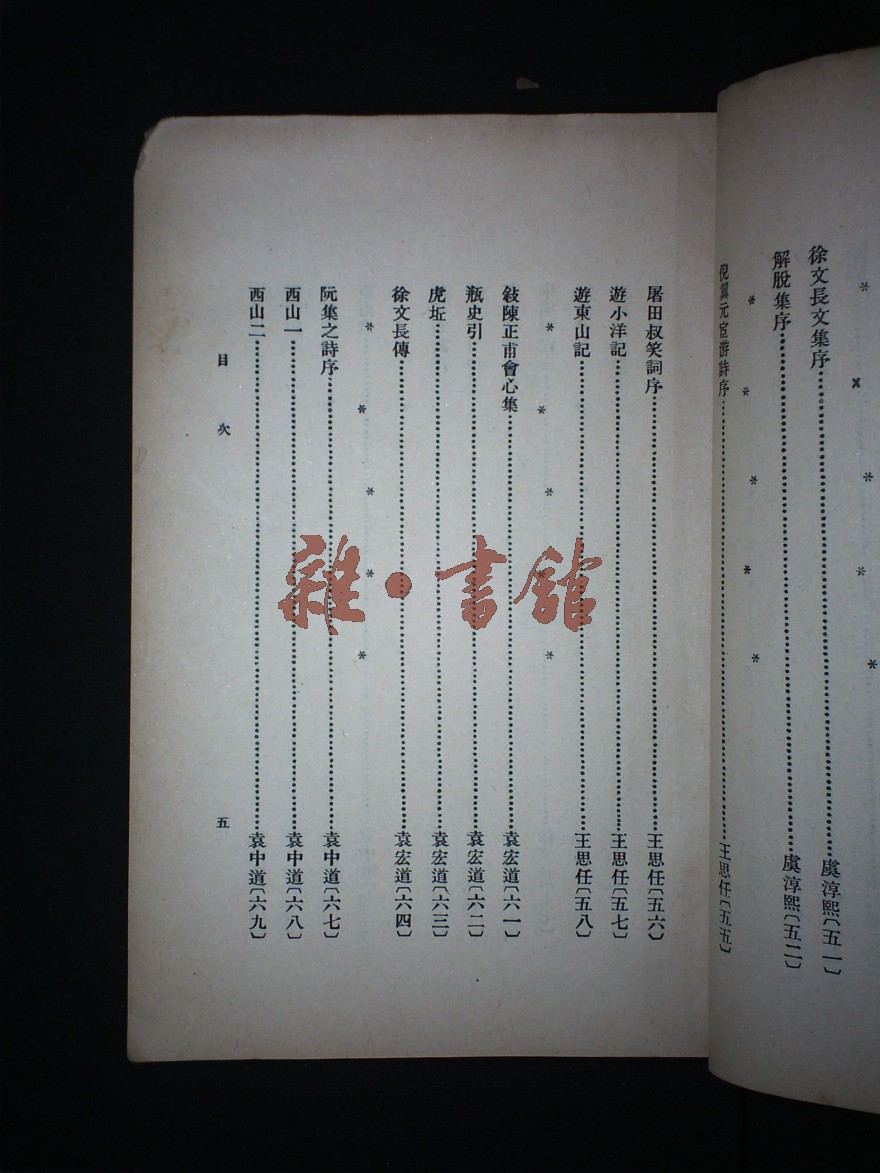 徐文長文集序……虞淳熙〔五一〕
解脫集序……虞淳熙〔五二〕
* * * *
倪翼元宦游詩序……王思任〔五五〕
屠田叔笑詞序……王思任〔五六〕
遊小洋記……王思任〔五七〕
遊東山記……王思任〔五八〕
* * * * *
敍陳正甫會心集……袁宏道〔六一〕
瓶史引……袁宏道〔六二〕
虎坵……袁宏道〔六三〕
徐文長傳……袁宏道〔六四〕
* * * * *
阮集之詩序……袁中道〔六七〕
西山一……袁中道〔六八〕
西山二……袁中道〔六九〕
目次
五
雜·書館